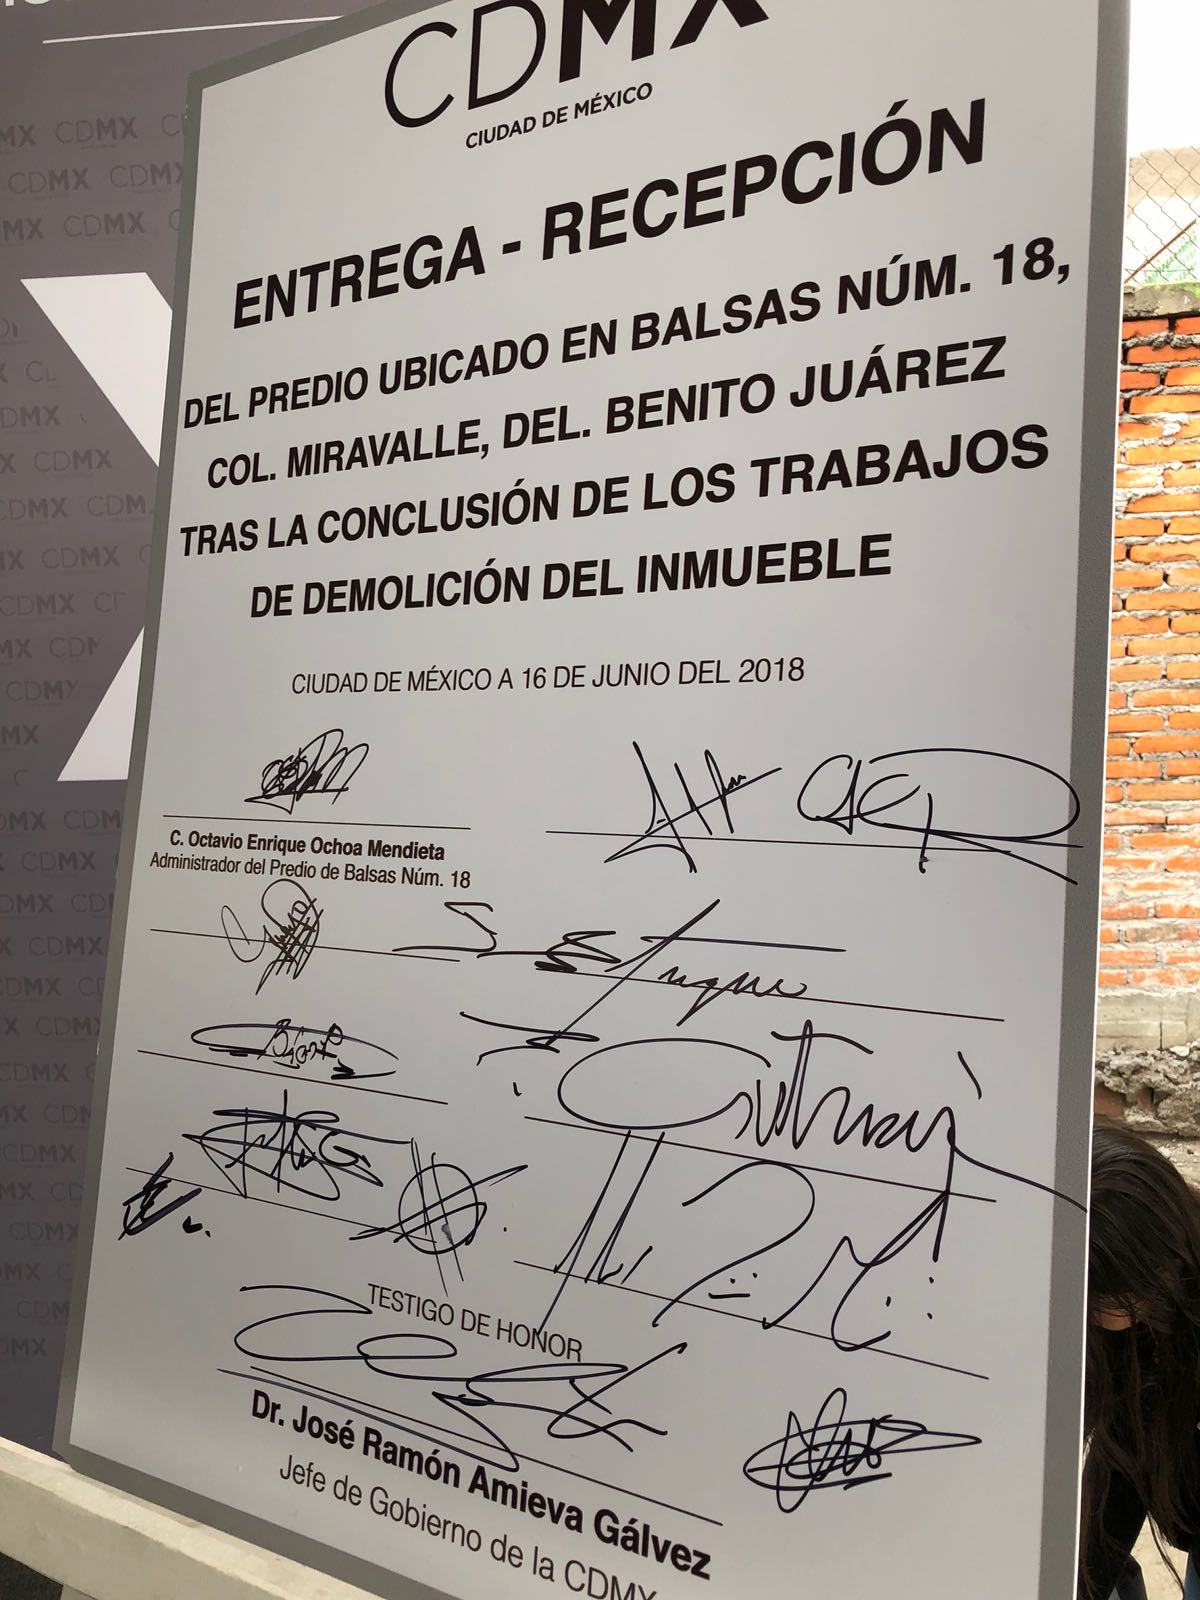 CDMX
CIUDAD DE MÉXICO
ENTREGA - RECEPCIÓN
DEL PREDIO UBICADO EN BALSAS NÚM. 18,
COL. MIRAVALLE, DEL. BENITO JUÁREZ
TRAS LA CONCLUSIÓN DE LOS TRABAJOS
DE DEMOLICIÓN DEL INMUEBLE
CIUDAD DE MÉXICO A 16 DE JUNIO DEL 2018
C. Octavio Enrique Ochoa Mendieta
Administrador del Predio de Balsas Núm. 18
TESTIGO DE HONOR
Dr. José Ramón Amieva Gálvez
Jefe de Gobierno de la CDMX